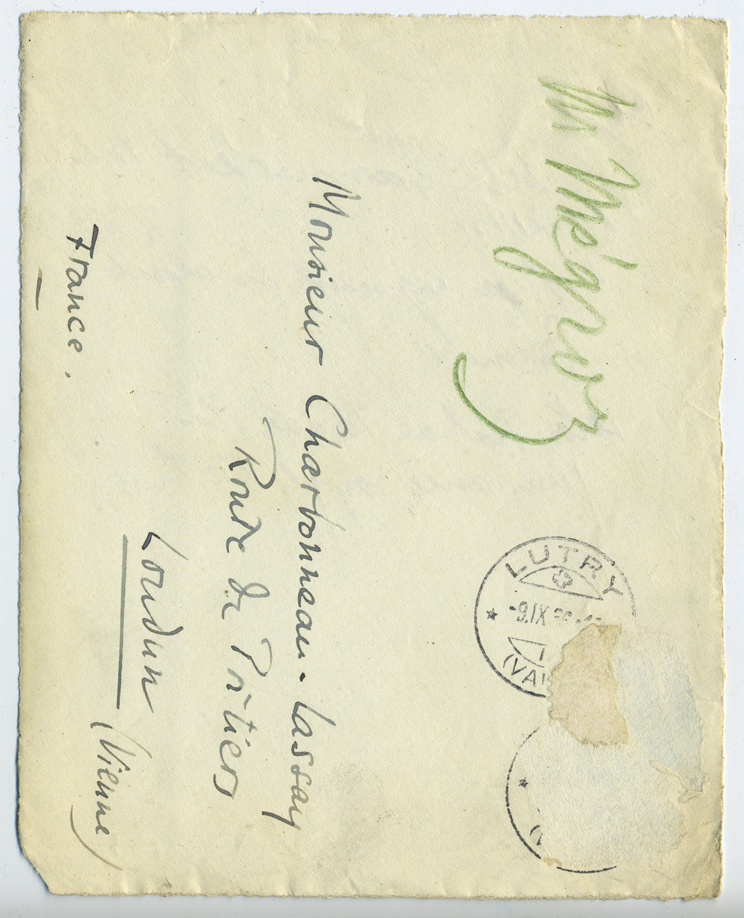 M Mégroz
LUTRY
-9.IX
(VA
Monsieur Charbonneau-Lassay
Route de Poitiers
Loudun (Vienne)
France.